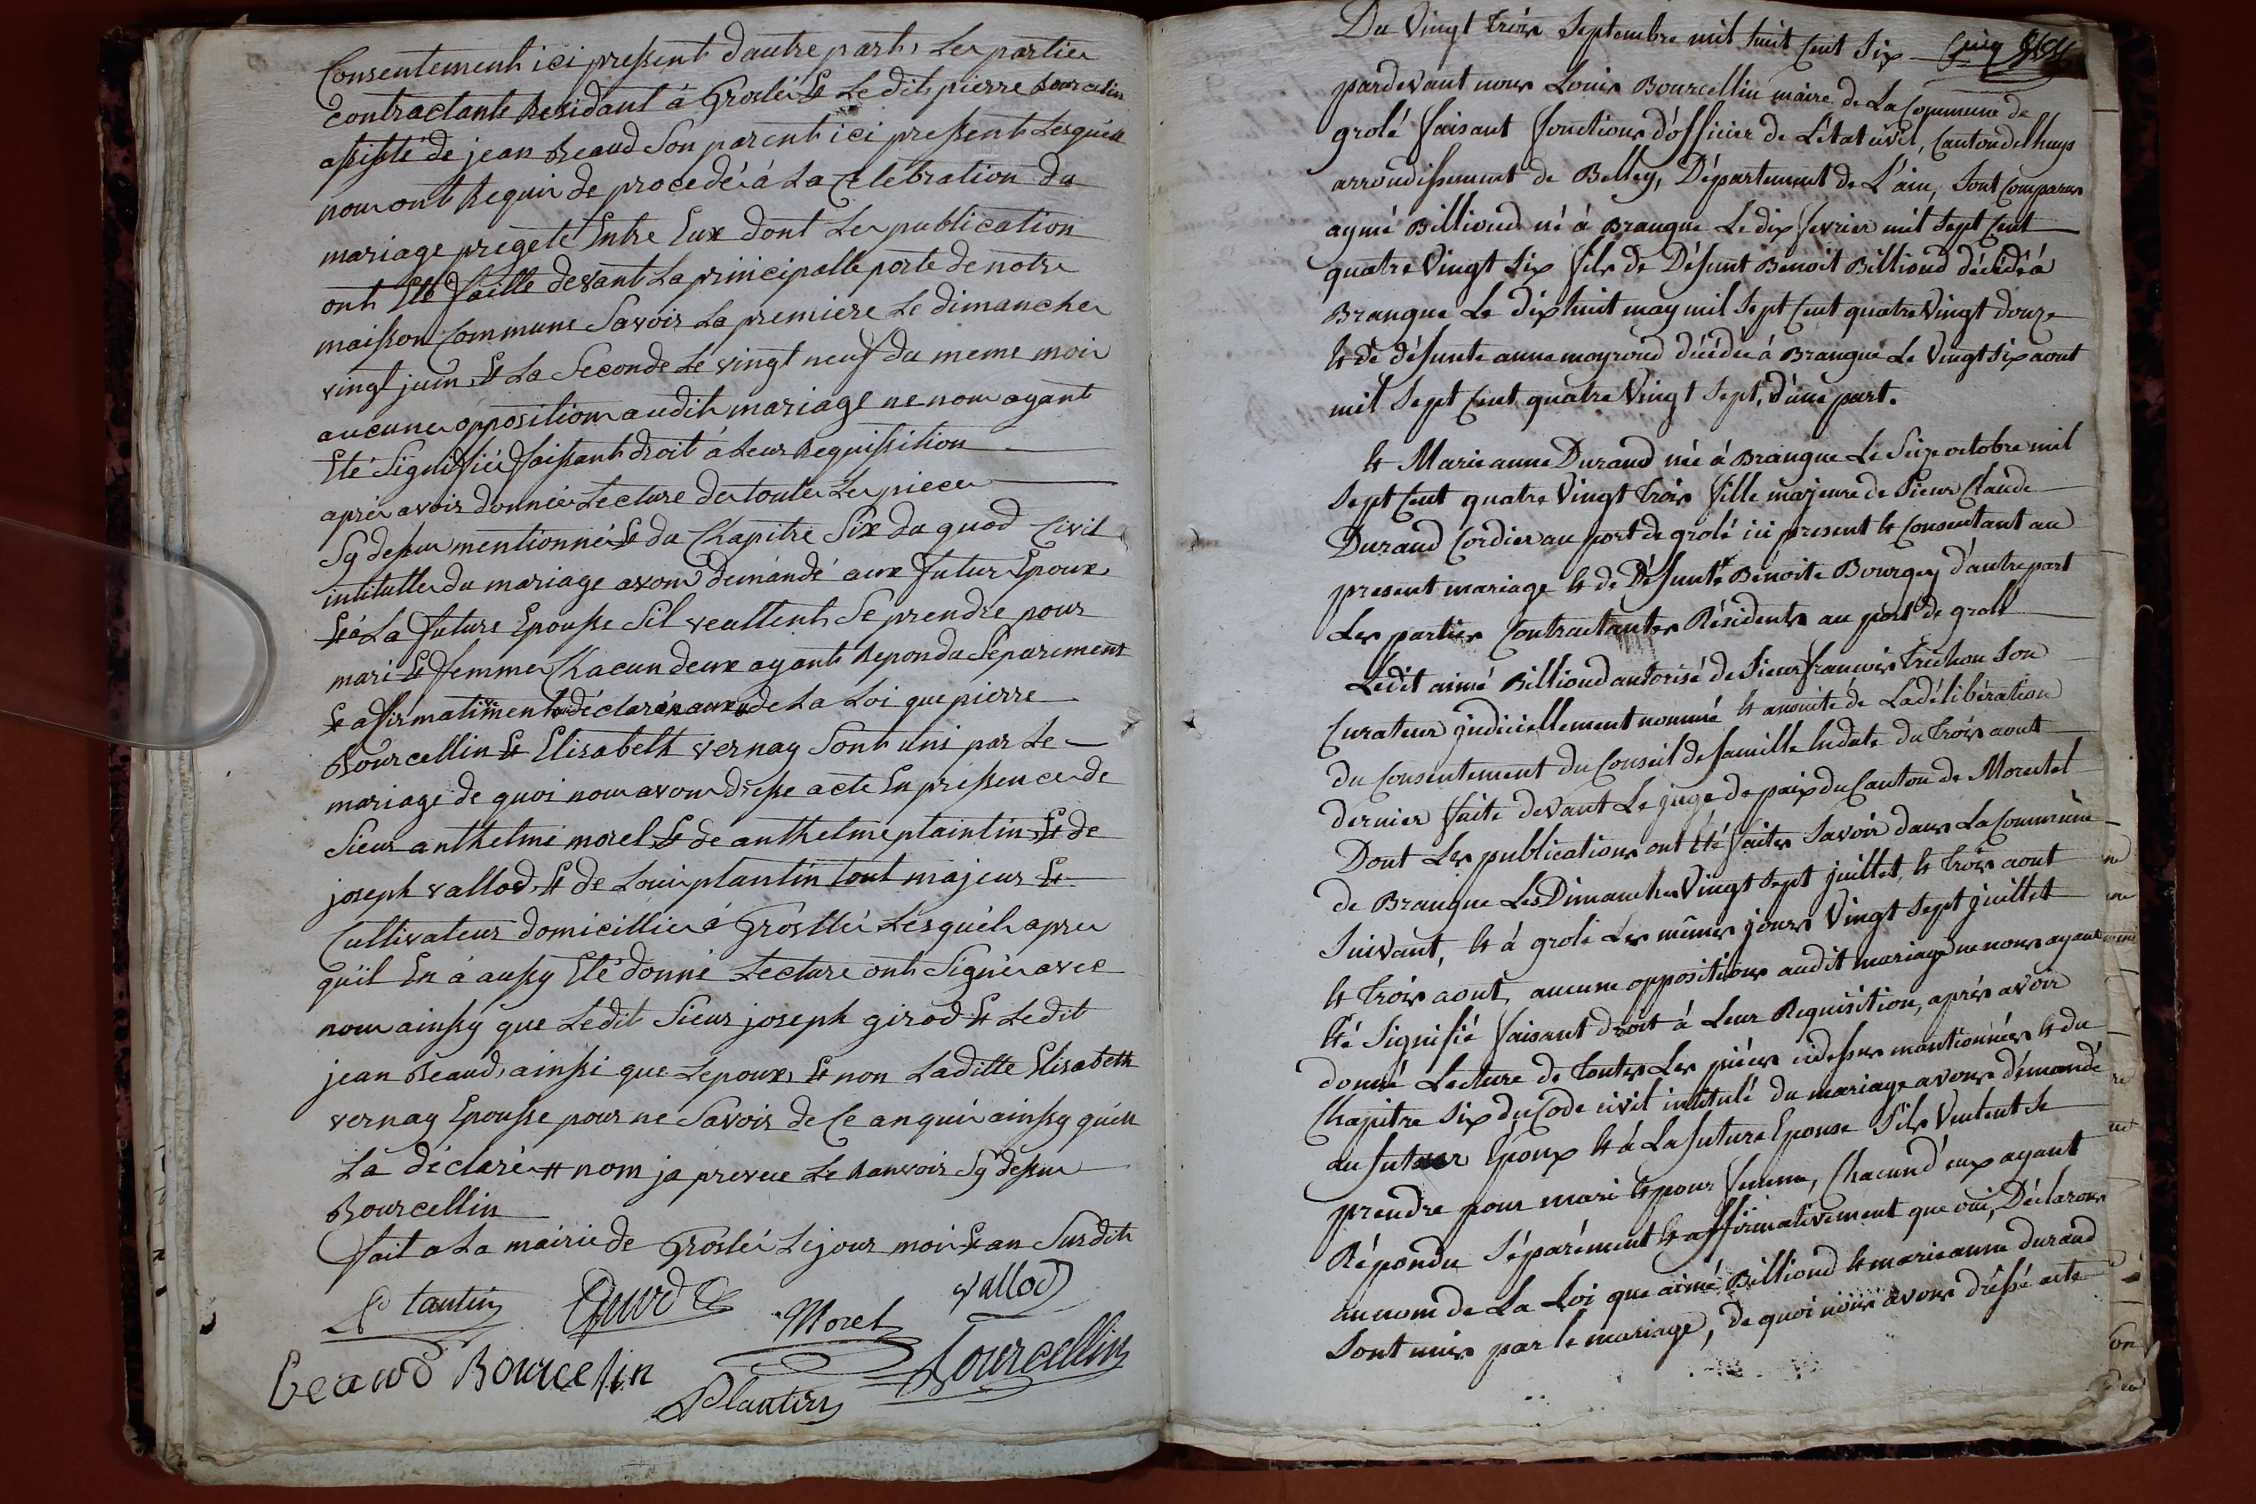 Consentement ici present dautre part, Les partie
contractants Residant á Groslée Et Le dit pierre Bourcelin
assisté de jean Beaud Son parent ici present Lesquels
nous ont Requis de procedé á La Celebration du
mariage projeté Entre Eux dont Les publication
ont Eté faitte devant La principalle porte de notre
maisson Commune Savoir La premiere Le dimanche
vingt juin Et La Seconde Le vingt neuf du meme mois
aucune opposition audit mariage ne nous ayant
Eté Signiffiée faissant droit á Leur Requissition
aprés avoir donnée Lecture de toutes Les pieces
Sy dessus mentionné Et du Chapitre Six du quod Civil
intitullé du mariage avons demandé aux futur Epoux
Et á La future Epousse Sil veullent Se prendre pour
mari Et femme Chacun deux ayant Repondu Separement
Et affirmativement déclarons au nom de La Loi que pierre
Bourcellin Et Elisabeth vernay Sont uni par Le
mariage de quoi nous avons dresse acte En pressence de
Sieur anthelme morel Et de anthelme plaintin Et de
joseph vallod Et de Louis plantin tout majeur Et
Cultivateur domicillié á Groslée Lesquéls apres
quil En á aussy Eté donné Lecture ont Signé avec
nous ainssy que Ledit Sieur joseph girod Et Ledit
jean Beaud, ainssi que Lepoux, Et non Laditte Elisabeth
vernay Epousse pour ne Savoir de Ce anquis ainssy quelle
La déclaré # nom ja preveue Le Ranvoir Sy dessus
Bourcellin
fait a La mairie de Groslée Le jour mois Et an Susdit
Plantin Girod Morel vallod
Beaud Bourcelin Plantin Bourcellin
Du Vingt trois Septembre mil huit Cent Six
pardevant nous Louis Bourcellin maire de La Commune de
grolé faisant fonctions d'officier de L'état civil, Canton de Lhuys
arrondissement de Belley, Département de L'ain, Sont Comparus
aymé Billioud né á Brangue Le dix fevrier mil Sept Cent
quatre Vingt Six fils de Défunt Benoit Billioud décédé á
Brangue Le dix huit may mil Sept Cent quatre Vingt douze
et de défunte anne moyroud décédée á Brangue Le Vingt Six aout
mil Sept Cent quatre Vingt Sept, d'une part.
et Marie anne Durand née á Brangue Le Seize octobre mil
Sept Cent quatre Vingt trois fille majeure de Sieur Claude
Durand Cordier au port de grolé ici present et Consentant au
present mariage et de Défunte Benoite Bourgey d'autre part
Les parties Contractantes Résidents au port de grolé
Ledit aimé Billioud autorisé de Sieur francois Trichon Son
Curateur judiciellement nommé et anouité de La délibération
du Consentement du Conseil de famille En date du trois aout
dernier faite devant Le juge de paix du Canton de Morestel
Dont Les publications ont été faites Savoir dans La Commune
de Brangue Les Dimanches Vingt Sept juillet, et trois aout
Suivant, et á grolé Les mêmes jours Vingt Sept juillet
et trois aout, aucune oppositions audit mariage ne nous ayant
été Signifié faisant droit á Leur Requisition, aprés avoir
donné Lecture de toutes Les piéces cidessus mantionnées et du
Chapitre Six du Code civil intitulé du mariage avons démandé
au futur Epoux et á La future Epouse S'ils Veulent Se
prendre pour mari et pour femme, Chacun d'eux ayant
Répondu Séparément et affirmativement que oui, Déclarons
au nom de La Loi que aimé Billioud et marie anne durand
Sont unis par le mariage, De quoi nous avons dressé acte